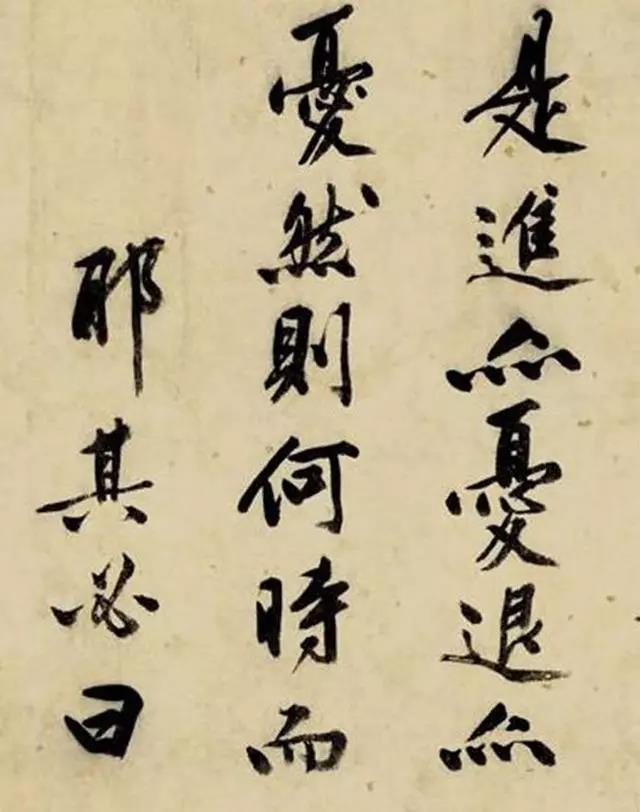 是進亦憂退亦
憂然則何時而
耶其必曰